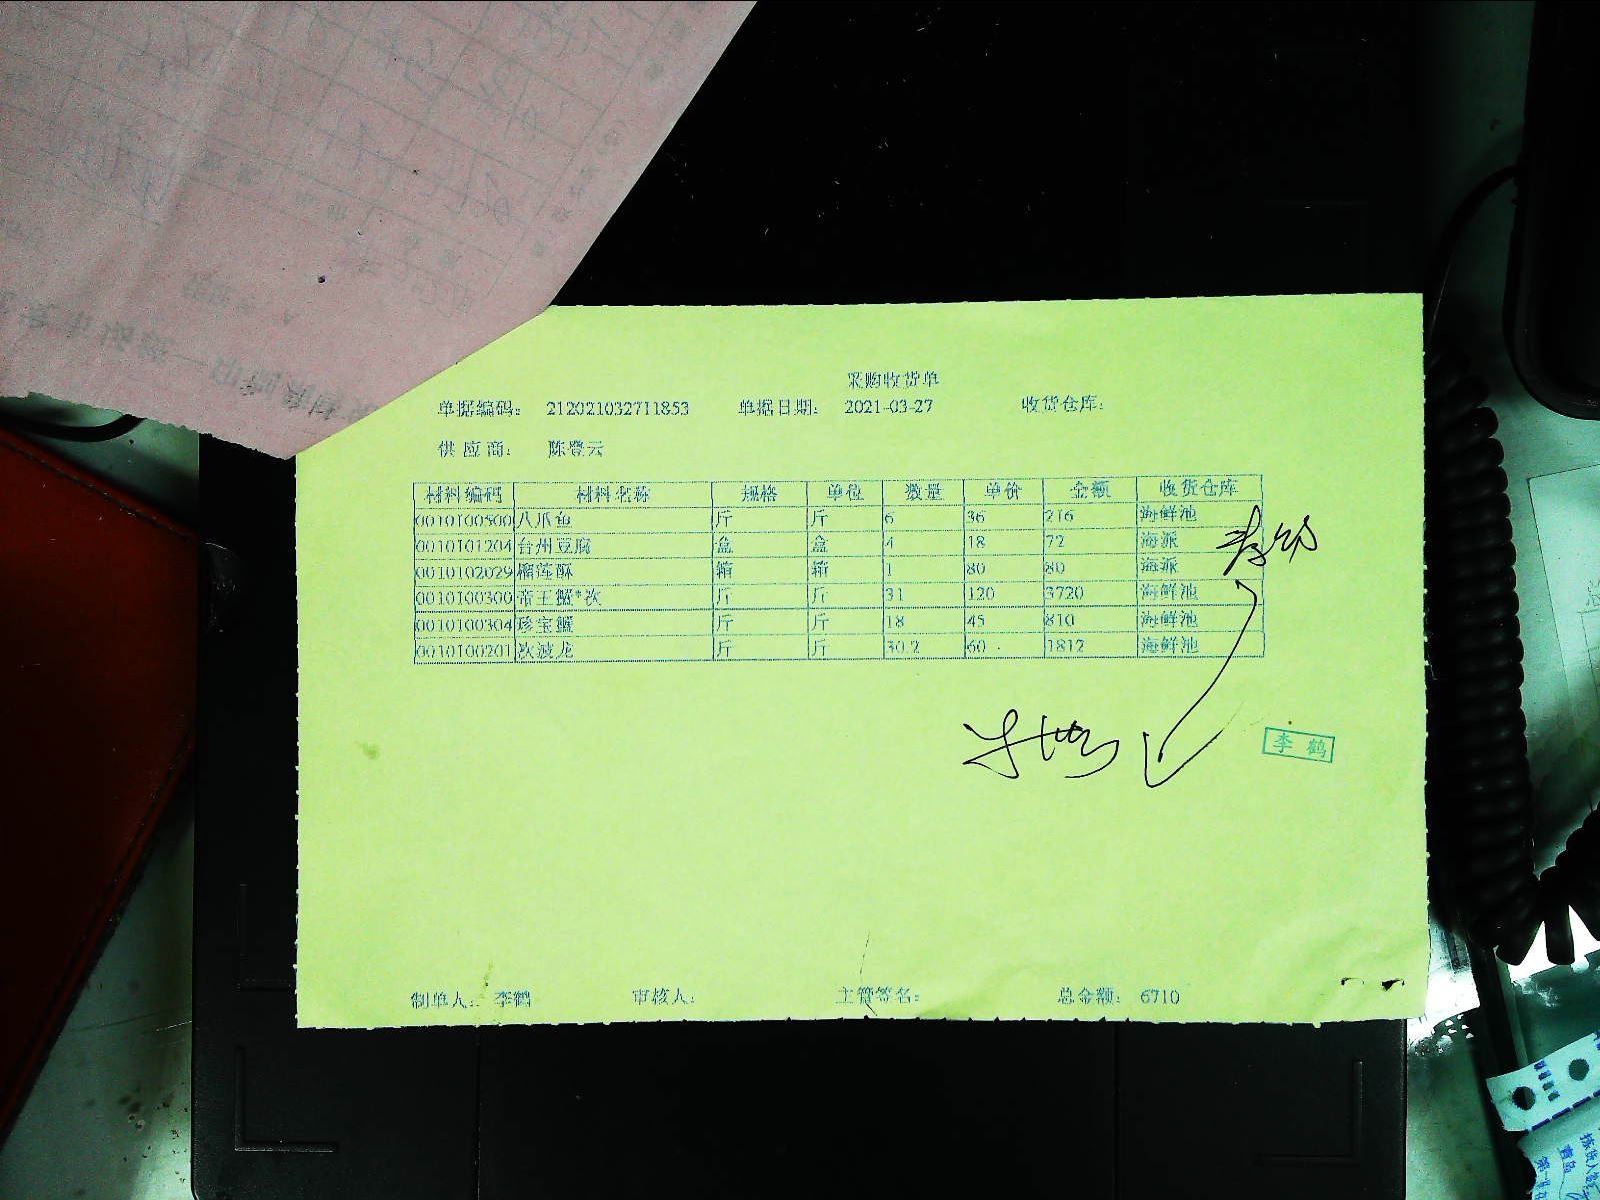 采购收货单
单据编码: 212021032711853 单据日期: 2021-03-27 收货仓库:
供应商: 陈登云
材料编码 材料名称 规格 单位 数量 单价 金额 收货仓库
0010100500 八爪鱼 斤 斤 6 36 216 海鲜池
0010101204 台州豆腐 盒 盒 4 18 72 海派
0010102029 榴莲酥 箱 箱 1 80 80 海派
0010100300 帝王蟹*次 斤 斤 31 120 3720 海鲜池
0010100304 珍宝蟹 斤 斤 18 45 810 海鲜池
0010100201 次波龙 斤 斤 30.2 60 1812 海鲜池
李鹤
制单人: 李鹤 审核人: 主管签名: 总金额: 6710